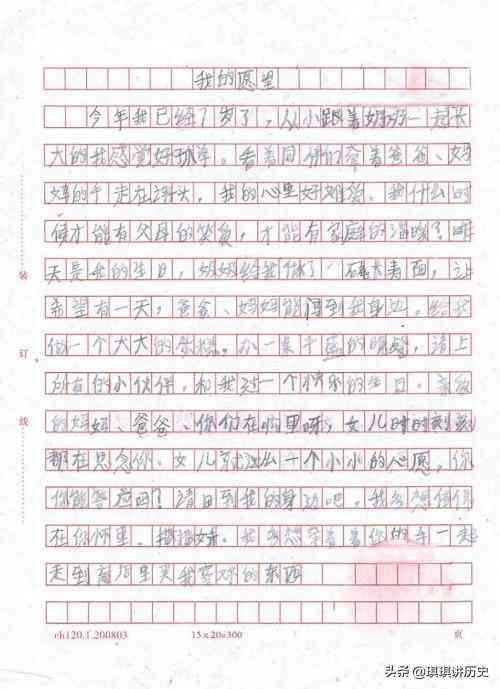 我的愿望
今年我已经7岁了,从小跟着妈妈一起长
大的我感觉好孤单。看着同伴们牵着爸爸、妈
妈的手走在街头,我的心里好难受。我什么时
候才能有父母的笑容,才能有家庭的温暖?昨
天是我的生日,妈妈给我做了一碗长寿面,让
希望有一天,爸爸、妈妈能回到我身边,给我
做一个大大的蛋糕。小 的 ,请上
所有的小伙伴,和我过一个快乐的生日。亲爱
的妈妈、爸爸、你们在哪里呀,女儿时时刻刻
都在思念你、女儿 一个小小的心愿,你
你能答应吗?请回到我的身边吧,我多想
在你怀里, 我多想牵着着你的手一起
走到商场里买我 的东西
装
订
线
ch120.1.200803
15x20=300
页
头条 @琪琪讲历史